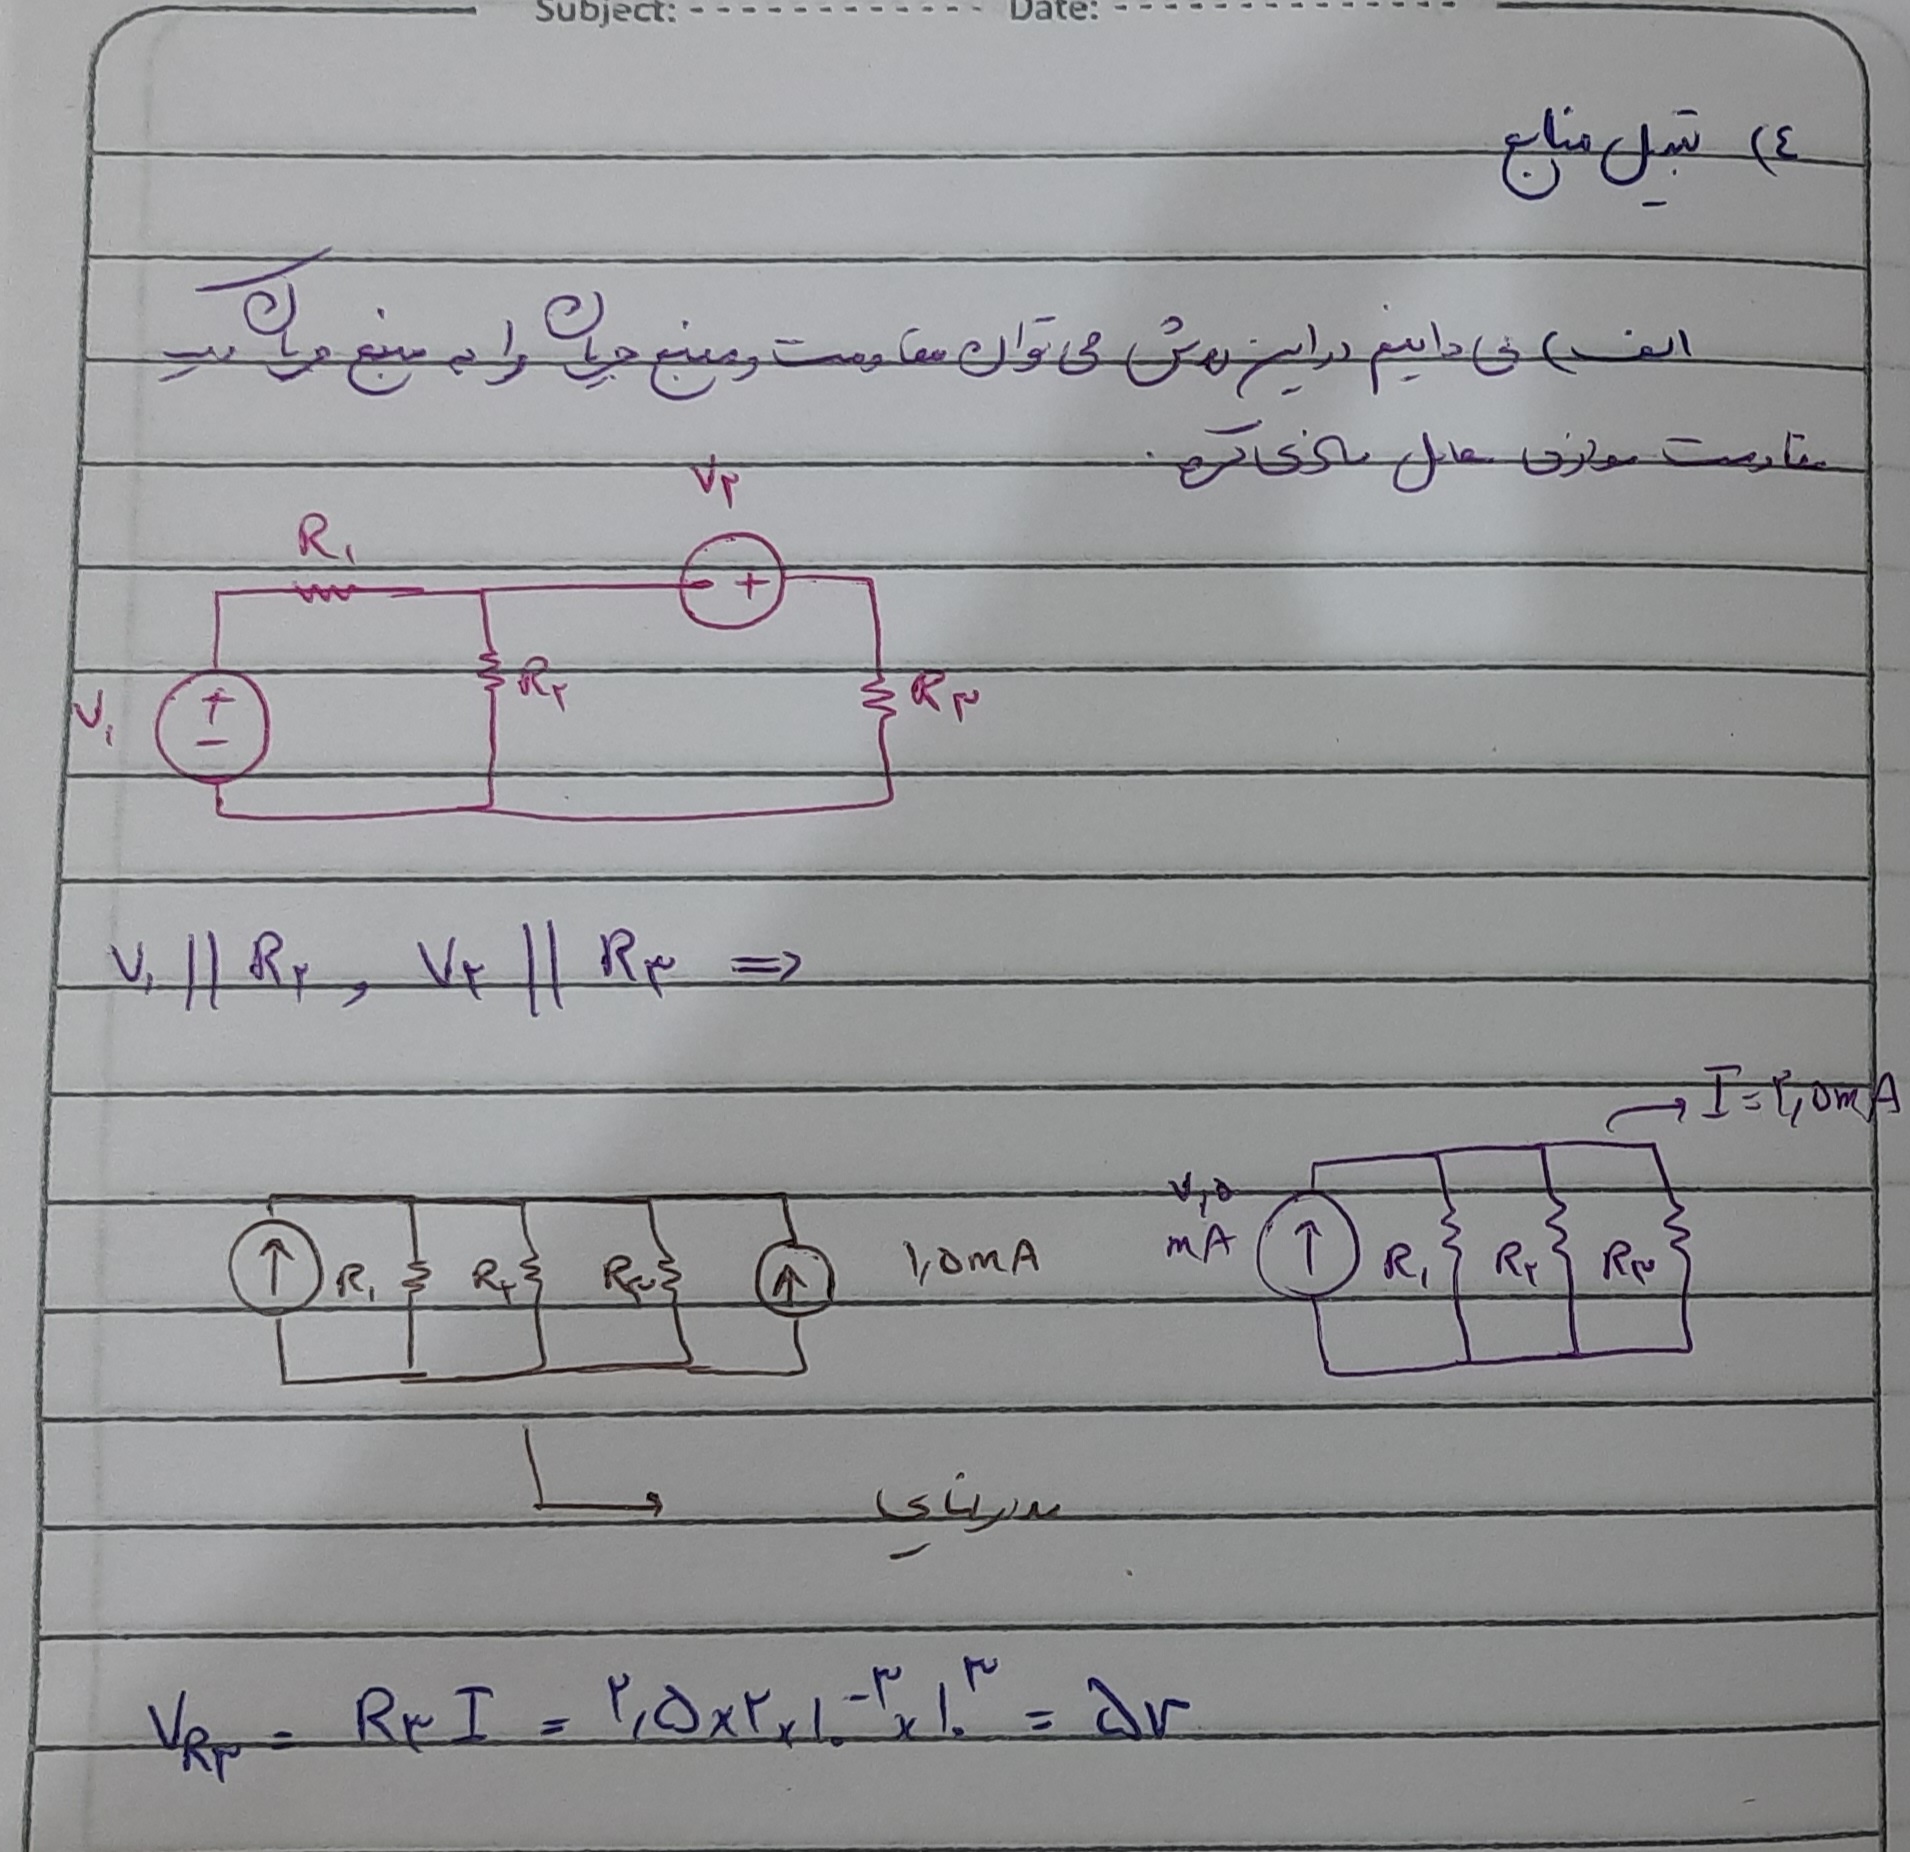 Subject: Date:
٤) تبدیل منابع
الف) می دانیم در این روش می توان مقاومت و منبع جریان را به منبع جریان
مقاومت موازی معادل سازی کرد.
V۲
R۱
R۲
R۳
V۱
V۱ || R۲ , V۲ || R۳ =>
I = ۲,۵mA
۷,۵
mA
R۱ R۲ R۳
R۱ R۲ R۳ ۱,۵mA
VR۳ = R۳ I = ۲,۵×۲×۱۰⁻³×۱۰³ = ۵v